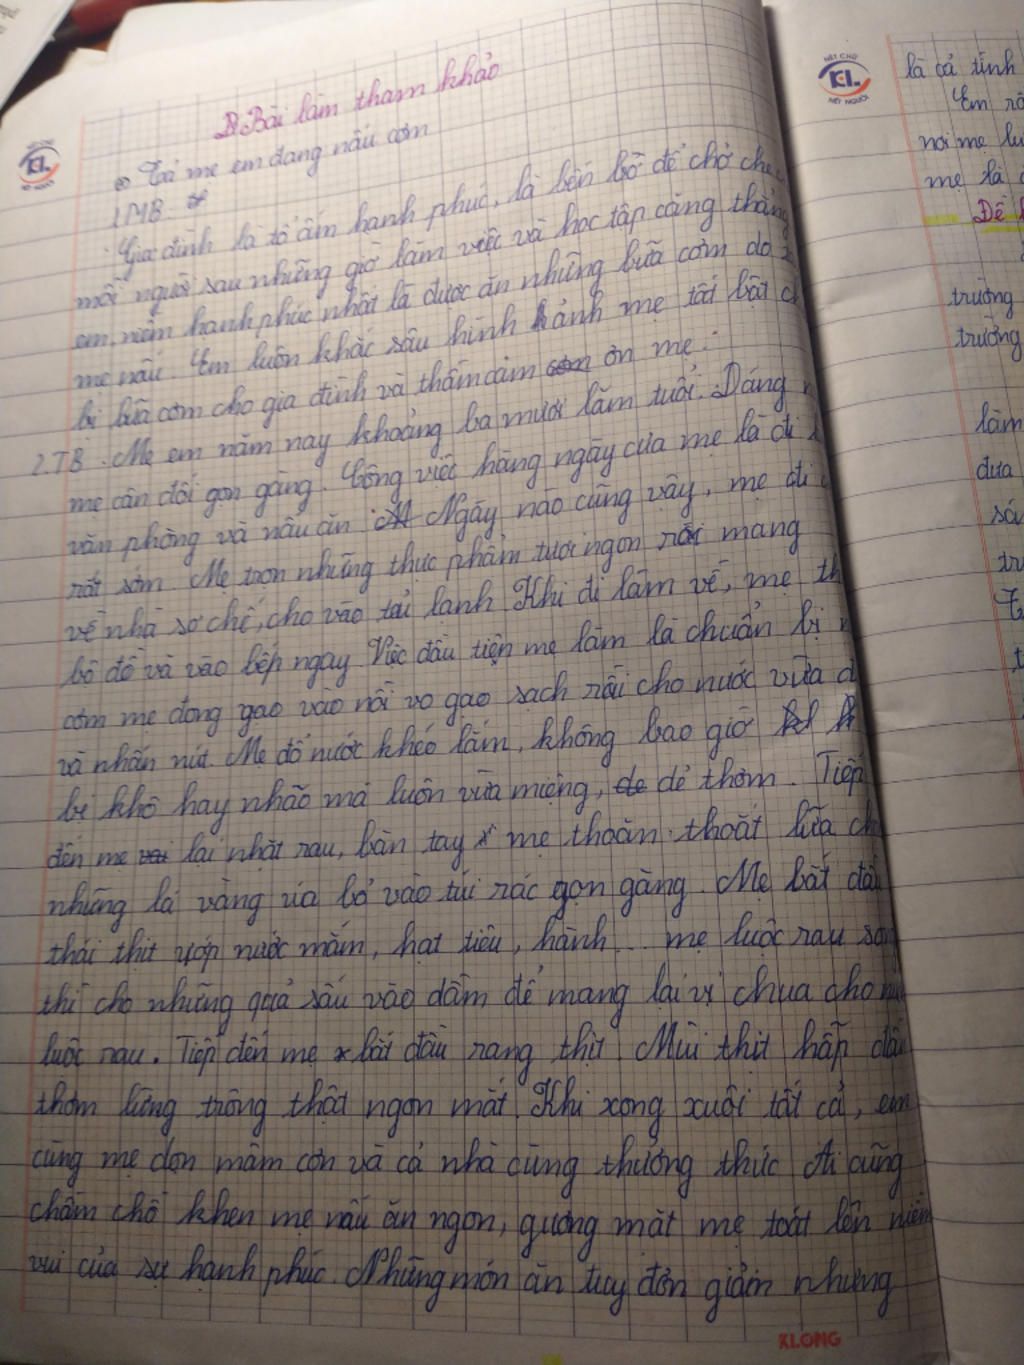 Bài làm tham khảo
Tả mẹ em đang nấu cơm
1MB:
Gia đình là tổ ấm hạnh phúc, là bến bờ để chở che
mỗi người sau những giờ làm việc và học tập căng thẳng
em, niềm hạnh phúc nhất là được ăn những bữa cơm do
mẹ nấu. Em luôn khắc sâu hình ảnh mẹ tất bật
bị bữa cơm cho gia đình và thầm cảm ơn mẹ.
2.TB. Mẹ em năm nay khoảng ba mươi lăm tuổi. Dáng
mẹ cân đối gọn gàng. Công việc hàng ngày của mẹ là đi
văn phòng và nấu ăn. Ngày nào cũng vậy, mẹ đi
rất sớm. Mẹ trọn những thực phẩm tươi ngon rồi mang
về nhà sơ chế, cho vào tủ lạnh Khi đi làm về, mẹ
bộ đồ và vào bếp ngay. Việc đầu tiện mẹ làm là chuẩn bị
cơm mẹ đong gạo vào nồi vo gạo sạch rồi cho nước vừa
và nhấn nút. Mẹ đổ nước khéo lắm, không bao giờ
bị khô hay nhão mà luôn vừa miệng, dẻ thơm. Tiếp
đến mẹ lại nhặt rau, bàn tay mẹ thoăn thoắt lữa
những lá vàng úa bỏ vào túi rác gọn gàng. Mẹ bắt đầu
thái thịt ướp nước mắm, hạt tiêu, hành... mẹ luộc rau
thì cho những quả sấu vào dầm để mang lại vị chua cho
luộc rau. Tiếp đến mẹ bắt đầu rang thịt. Mùi thịt hấp dẫn
thơm lừng trông thật ngon mắt. Khi xong xuôi tất cả, em
cùng mẹ dọn mâm cơn và cả nhà cùng thưởng thức Ai cũng
chầm chồ khen mẹ nấu ăn ngon, gương mặt mẹ toát lên niềm
vui của sự hạnh phúc. Những món ăn tuy đơn giản nhưng
KLONG
NÉT CHỮ
KL
NẾT NGƯỜI
là cả tính
Em
nơi mẹ
mẹ là
Đề
trường
trường
làm
đưa